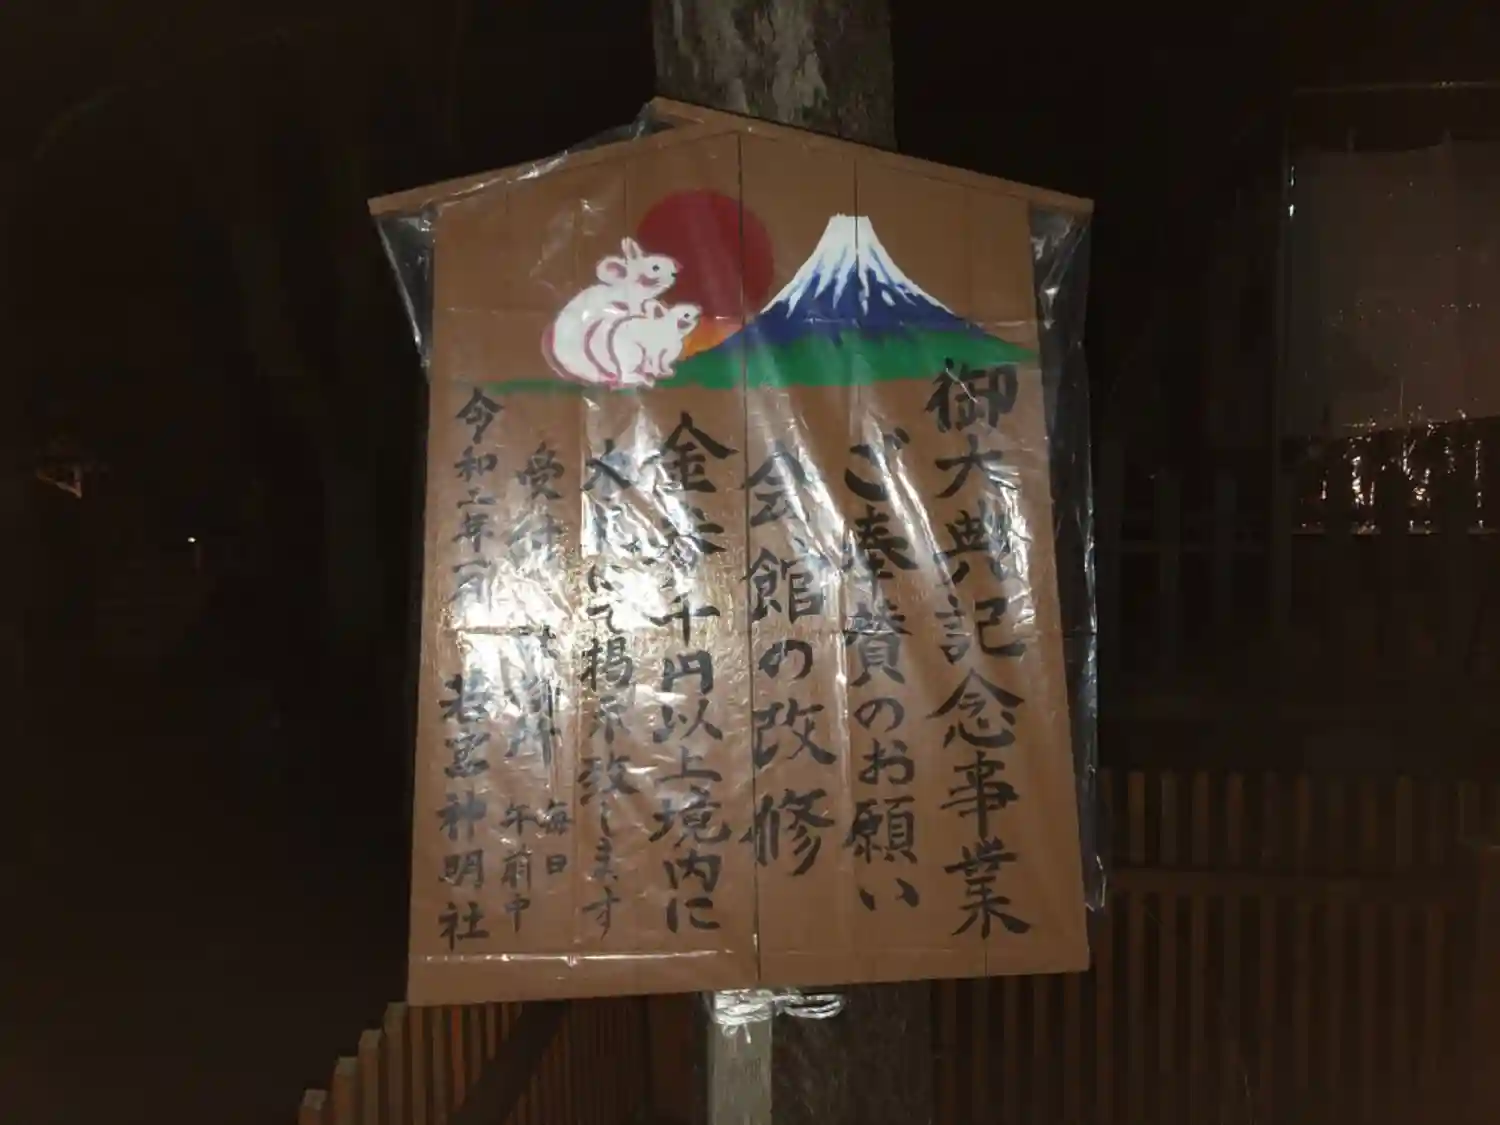 御大典記念事業
ご奉賛のお願い
会館の改修
金参千円以上境内に
木札にて掲示致します
受付 社務所 毎日
午前中
令和二年一月 若宮神明社